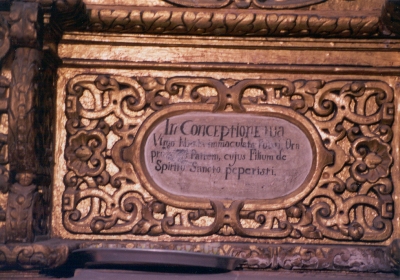 In Conceptione tua
Virgo immaculata
pro Patrem, cujus Filium de
Spiritu Sancto peperisti.